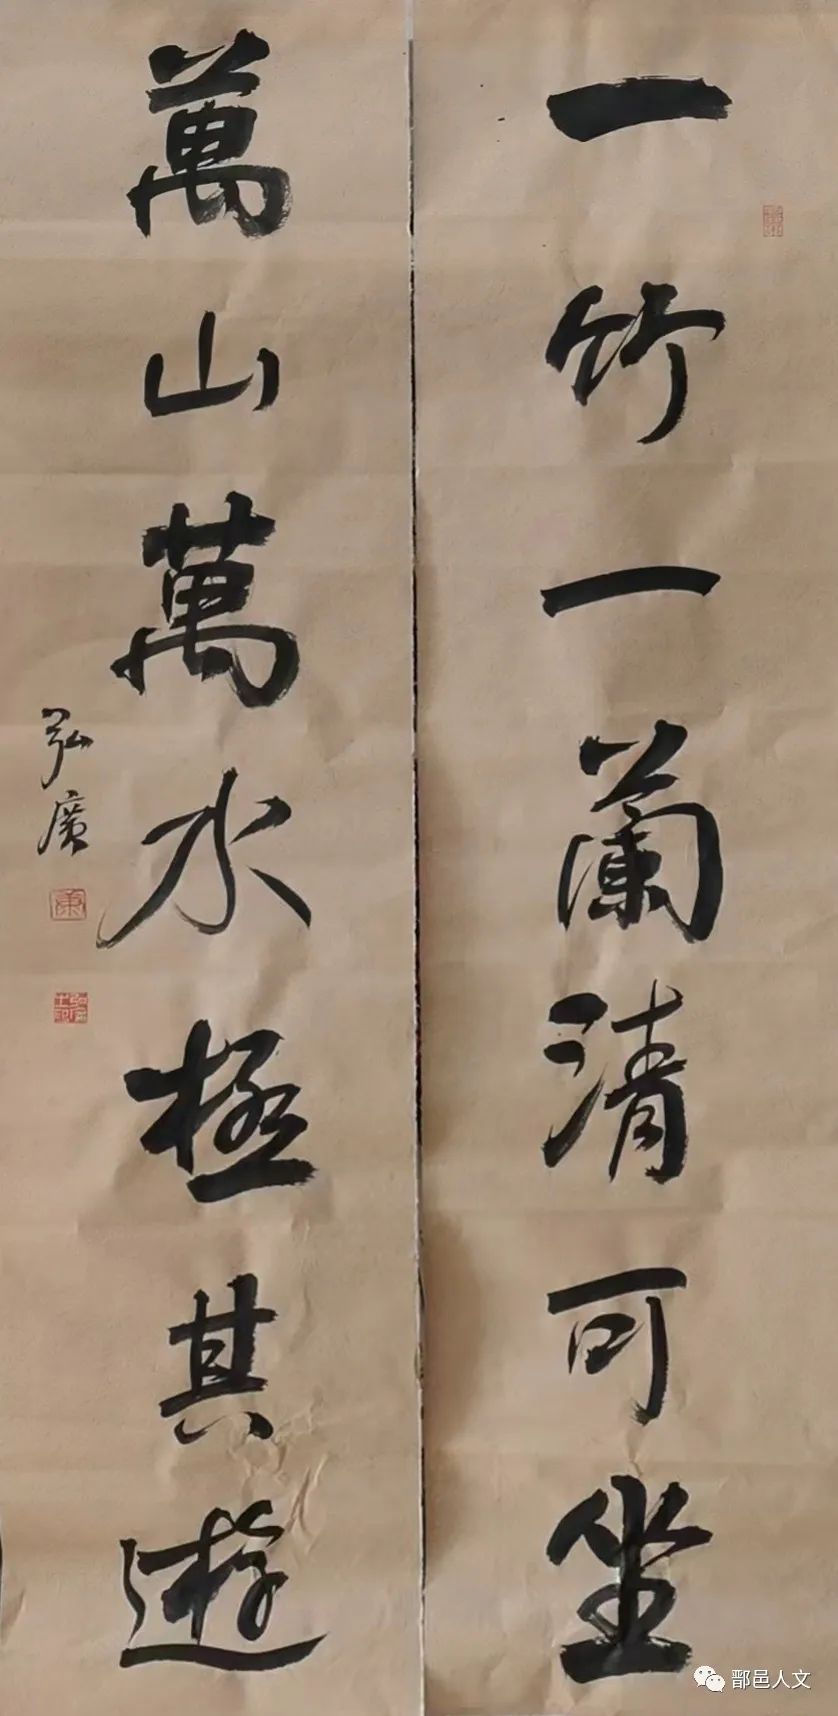 一竹一蘭清可坐
萬山萬水極其遊
弘廣
鄑邑人文